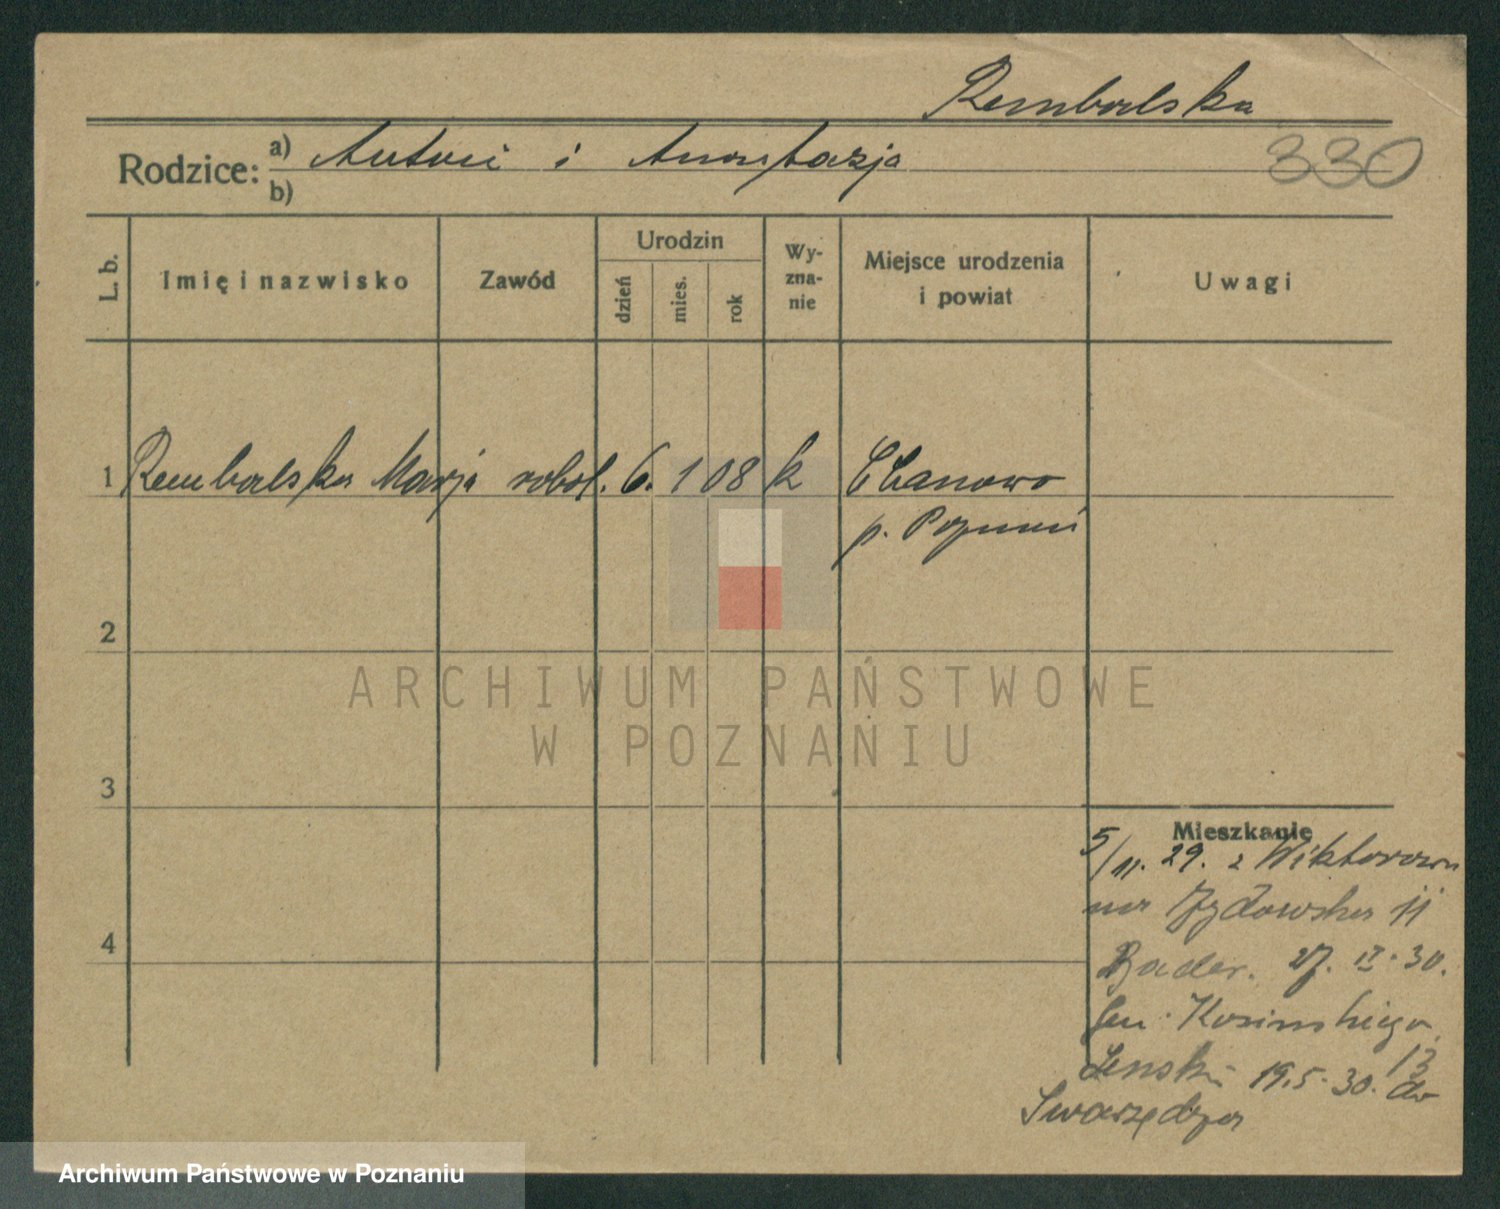 Rembalska
Rodzice: a) Antoni i Anastazja
b)
330
L. b.
Imię i nazwisko
Zawód
Urodzin
dzień
mies.
rok
Wy-
zna-
nie
Miejsce urodzenia
i powiat
Uwagi
1 Rembalska Marja robot. 6. 1 08 k
p. Poznań
2
3
4
ARCHIWUM PAŃSTWOWE
W POZNANIU
Mieszkanie
5/11. 29. z Wiktorowa
na Żydowska 11
Bader. 27. II. 30.
Gen. Kosinskiego
13
Lenski 19.5.30. do
Swarzędza
Archiwum Państwowe w Poznaniu